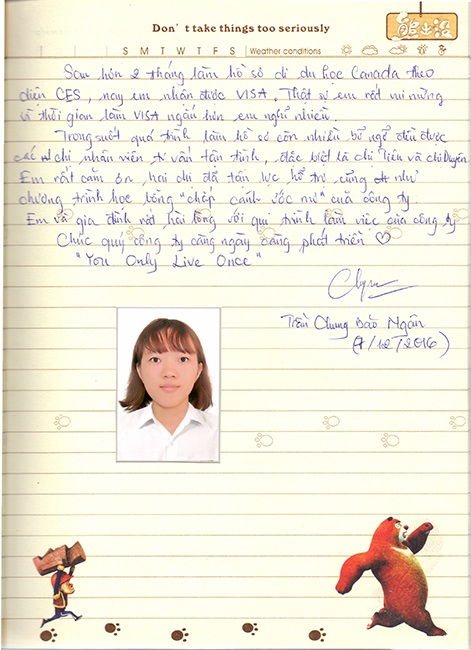 Don't take things too seriously
熊出没
S M T W T F S Weather conditions
Sau hơn 2 tháng làm hồ sơ đi du học Canada theo
diện CES, nay em nhận được VISA. Thật sự em rất vui mừng
vì thời gian làm VISA ngắn hơn em nghĩ nhiều.
Trong suốt quá trình làm hồ sơ còn nhiều bỡ ngỡ đều được
các chị nhân viên tư vấn tận tình, đặc biệt là chị Tiên và chị Duyên.
Em rất cảm ơn, hai chị đã tận lực hỗ trợ cũng như
chương trình học bổng "chắp cánh ước mơ" của công ty
Em và gia đình rất hài lòng với qui trình làm việc của công ty
Chúc quý công ty càng ngày càng phát triển ♡
"You Only Live Once"
Trần Chung Bảo Ngân
/12/2016)